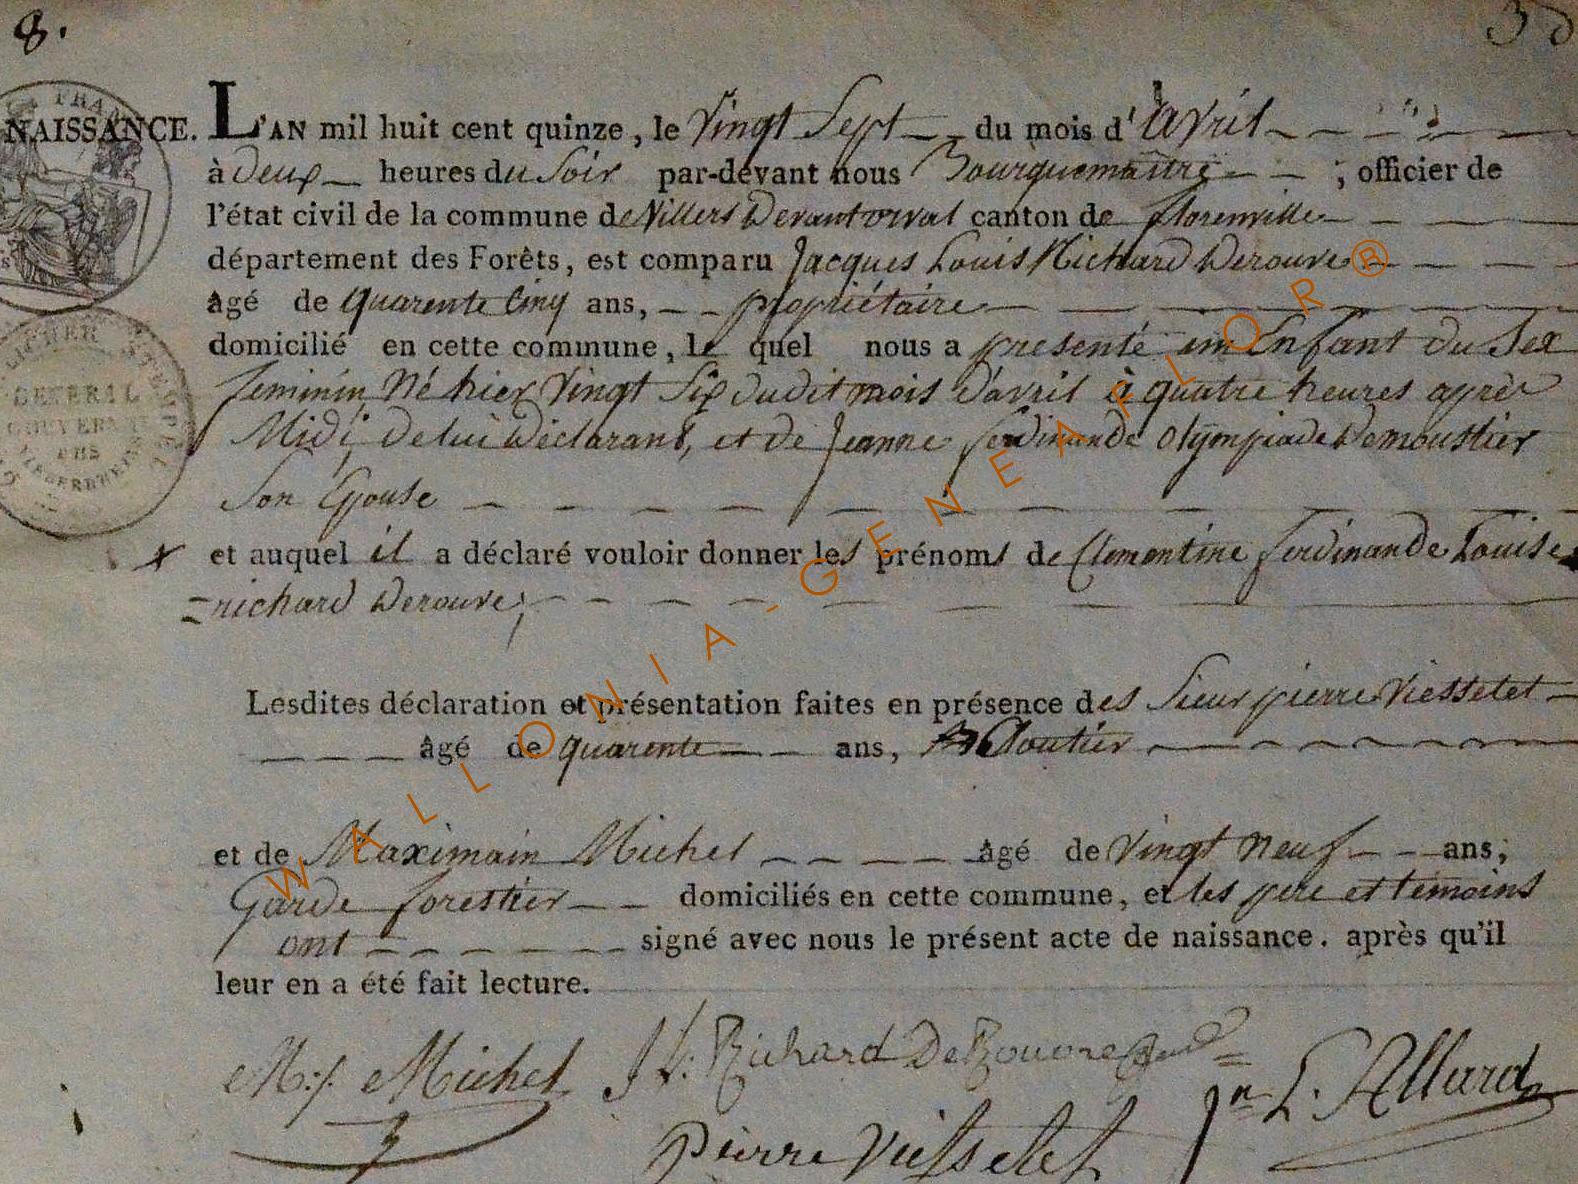 8.
NAISSANCE. L'AN mil huit cent quinze, le Vingt Sept du mois d'avril
à Deux heures du Soir par-devant nous Bourguemaitre ; officier de
l'état civil de la commune de Villers Devant orval canton de florenville
département des Forêts, est comparu Jacques Louis Richard Derouvre
âgé de quarente Cinq ans, propriétaire
domicilié en cette commune, le quel nous a presenté un Enfant du Sex
feminin Né hier Vingt Six dudit mois d'avril à quatre heures après
Midi, de lui Déclarant, et de Jeanne ferdinande Olympiade Demoustier
Son Epouse
et auquel il a déclaré vouloir donner les prénoms de Clementine ferdinande Louise
richard Derouvre;
Lesdites déclaration et présentation faites en présence des Sieur pierre Viesselet
âgé de quarente ans, Cloutier
et de Maximain Michel âgé de Vingt neuf ans,
Garde forestier domiciliés en cette commune, et les pere et temoins
ont signé avec nous le présent acte de naissance. après qu'il
leur en a été fait lecture.
M:f. Michel J L: Richard DeRouvre J L. Allard
Pierre Viesselet
WALLONIA-GENEAFLOR®